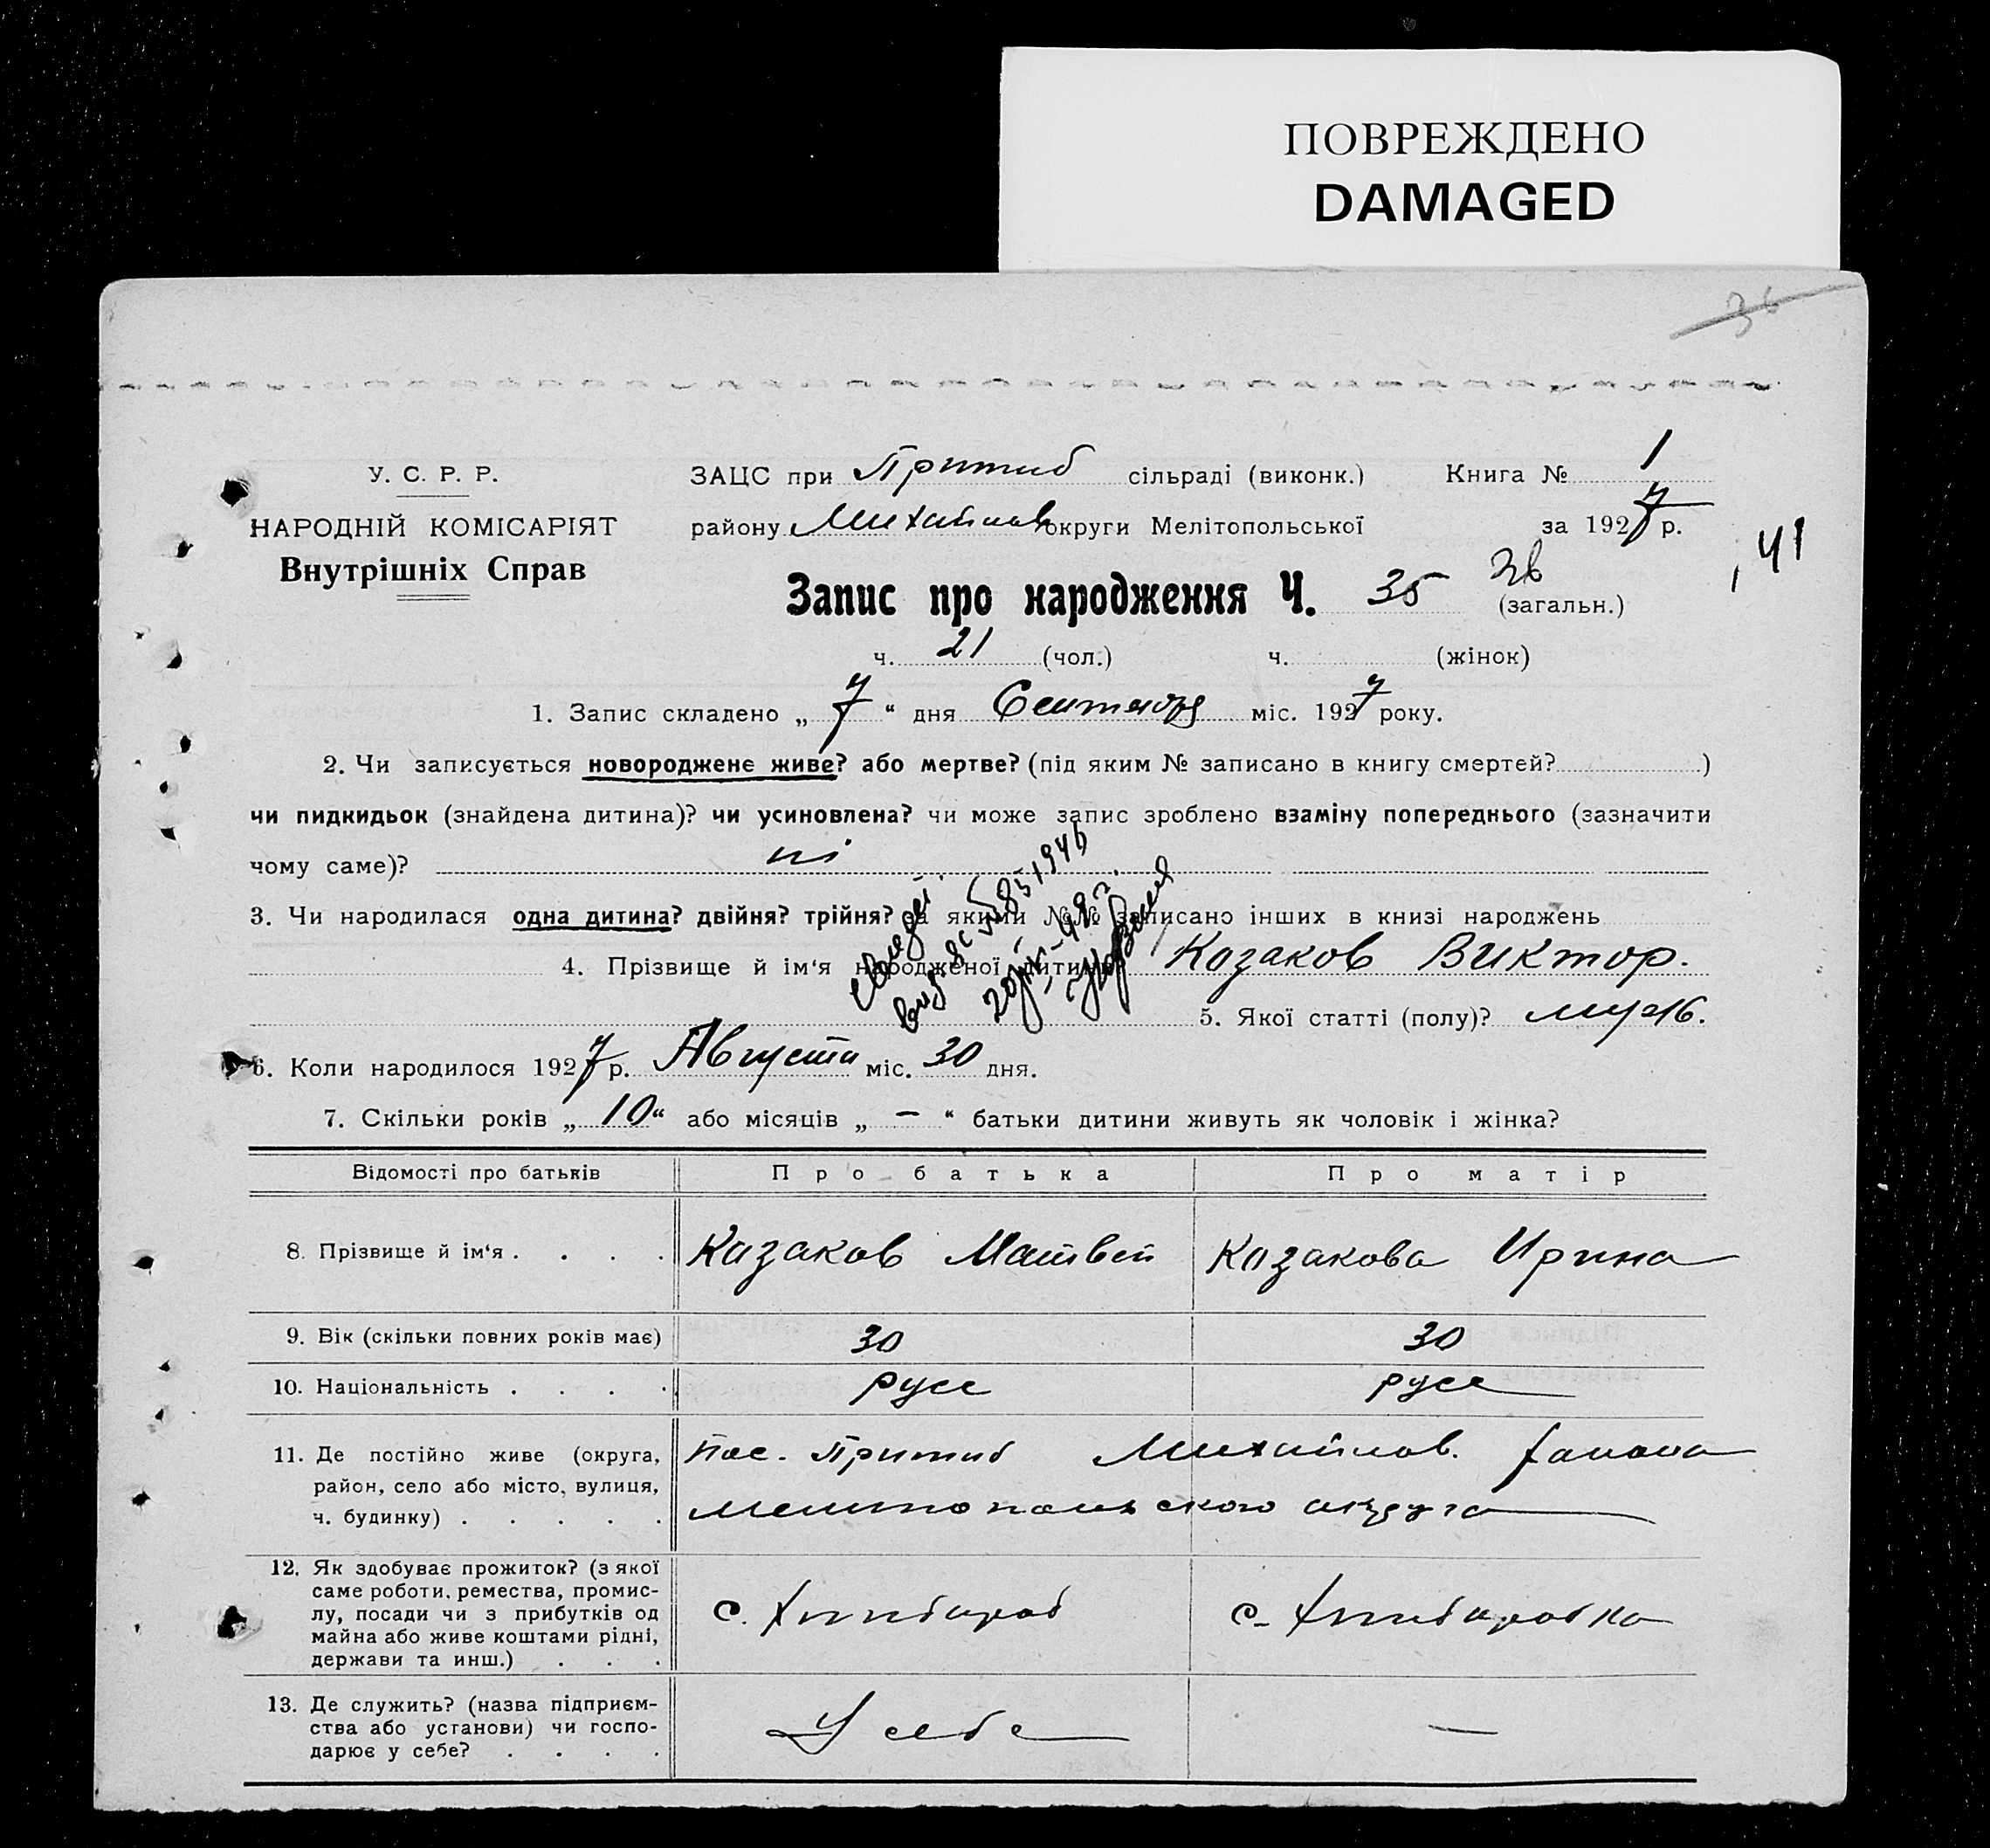 ПОВРЕЖДЕНО
DAMAGED
36
У. С. Р. Р.
НАРОДНІЙ КОМІСАРІЯТ
Внутрішніх Справ
ЗАЦС при Пришиб сільраді (виконк.) Книга № 1
району Михайлов округи Мелітопольської за 1927 р.
41
Запис про народження Ч. 35 36 (загальн.)
ч. 21 (чол.) ч. (жінок)
1. Запис складено „ 7 “ дня Сентября міс. 1927 року.
2. Чи записується новороджене живе? або мертве? (під яким № записано в книгу смертей? )
чи пидкидьок (знайдена дитина)? чи усиновлена? чи може запис зроблено взаміну попереднього (зазначити
чому саме)? ні
3. Чи народилася одна дитина? двійня? трійня? за якими №№ записано інших в книзі народжень
4. Прізвище й ім‘я народженої дитини Козаков Виктор.
5. Якої статті (полу)? муж.
6. Коли народилося 1927 р. Августа міс. 30 дня.
7. Скільки років „ 10 “ або місяців „ — “ батьки дитини живуть як чоловік і жінка?
Відомості про батьків Про батька Про матір
8. Прізвище й ім‘я . . . . Казаков Матвей Козакова Ирина
9. Вік (скільки повних років має) 30 30
10. Національність . . . . русс русс
11. Де постійно живе (округа, пос. Пришиб Михайлов. района
район, село або місто, вулиця,
ч. будинку) . . . . . Мелитопольского округа
12. Як здобуває прожиток? (з якої
саме роботи, ремества, промис-
лу, посади чи з прибутків од с. хлебороб с. хлеборобка
майна або живе коштами рідні,
держави та инш.) . . .
13. Де служить? (назва підприєм-
ства або установи) чи госпо- У себе —
дарює у себе? . . . .